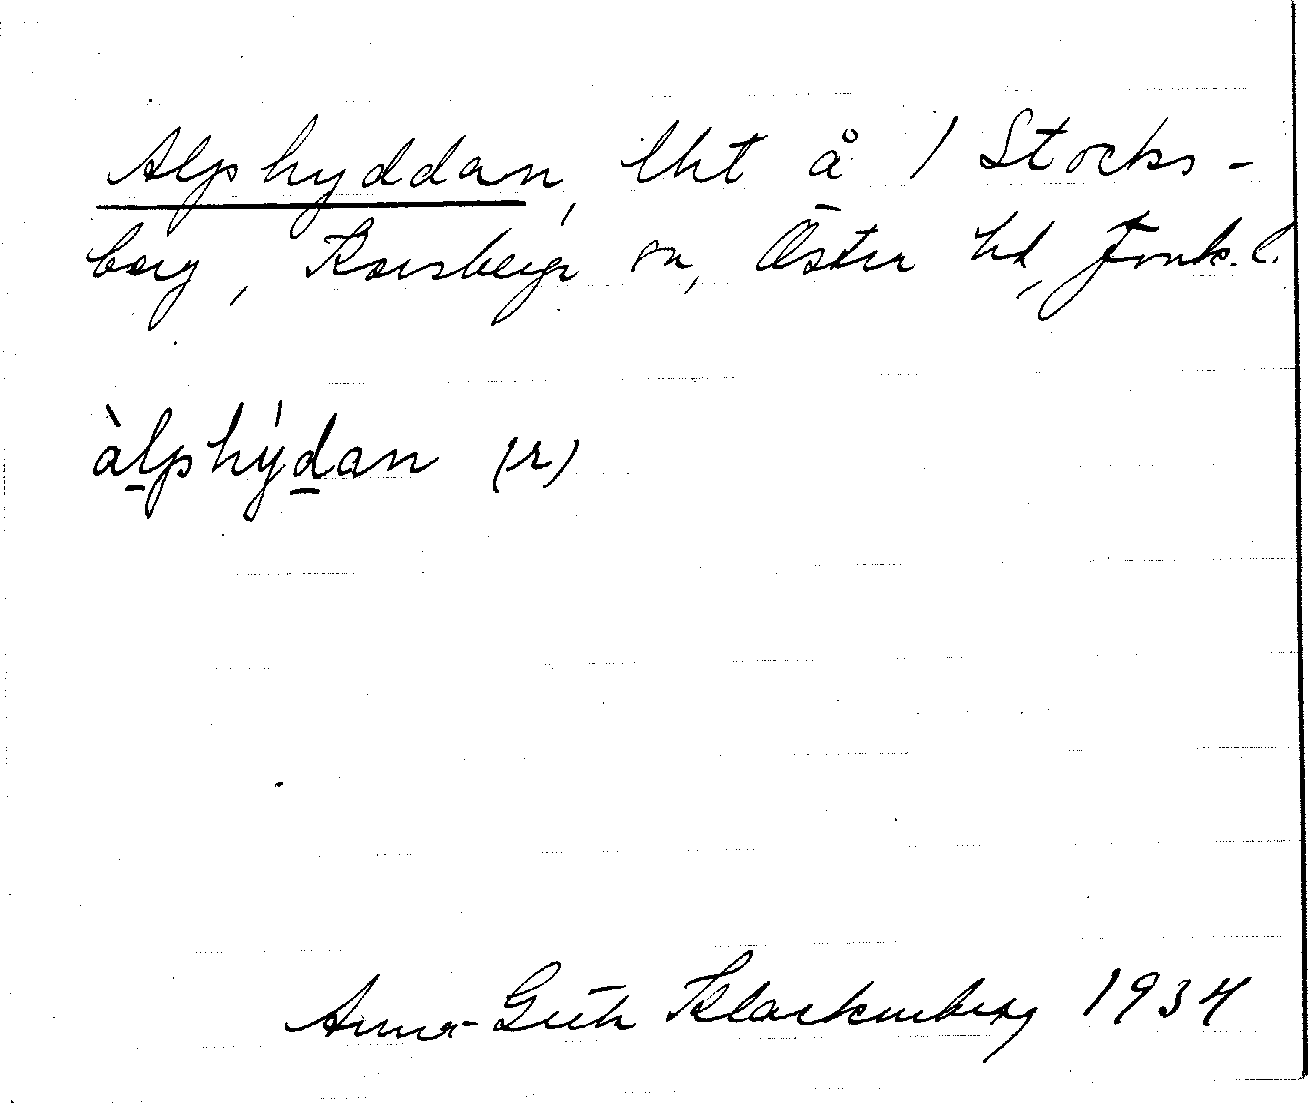 Alphyddan, lht å 1 Stocks-
berg, Korsberga sn, Östra hd, Jönk. l.
àlphy̍dan (r)
Anna-Greta Klackenberg 1934